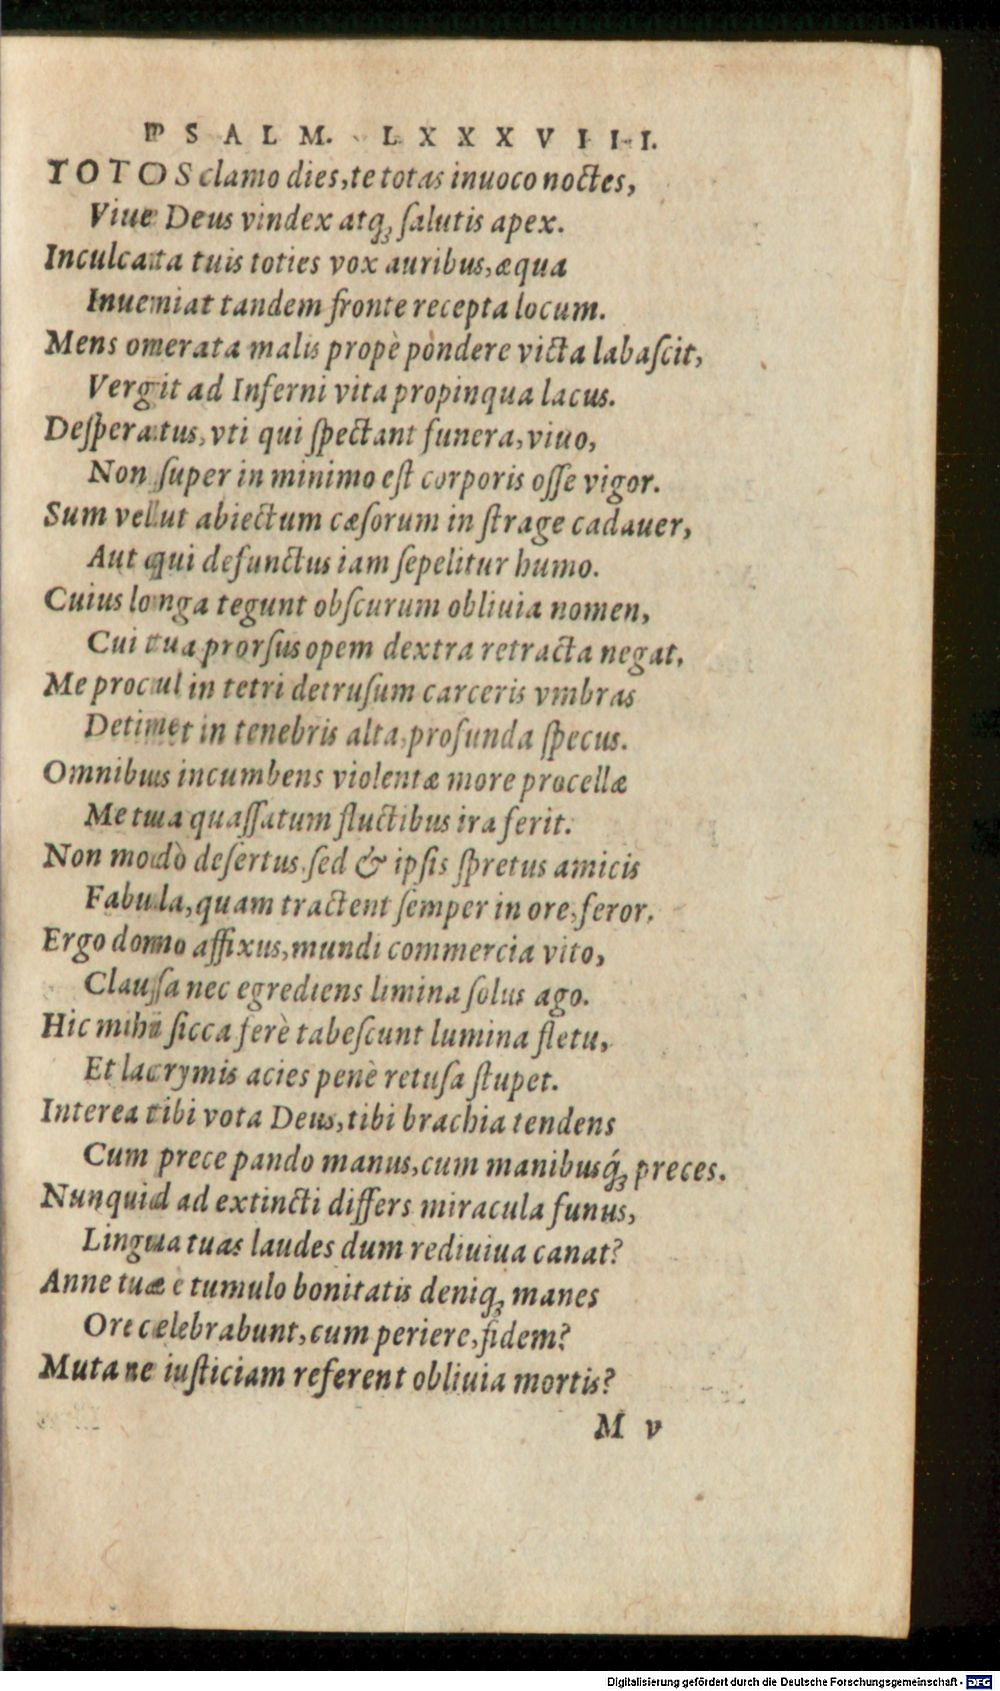 PSALM. LXXXVIII.
TOTOS clamo dies, te totas inuoco noctes,
Viue Deus vindex atq; ſalutis apex.
Inculcata tuis toties vox auribus, æqua
Inueniat tandem fronte recepta locum.
Mens onerata malis propè pondere victa labaſcit,
Vergit ad Inferni vita propinqua lacus.
Deſperatus, vti qui ſpectant funera, viuo,
Non ſuper in minimo eſt corporis oſſe vigor.
Sum velut abiectum cæſorum in ſtrage cadauer,
Aut qui defunctus iam ſepelitur humo.
Cuius longa tegunt obſcurum obliuia nomen,
Cui tua prorſus opem dextra retracta negat,
Me procul in tetri detruſum carceris vmbras
Detinet in tenebris alta, profunda ſpecus.
Omnibus incumbens violentæ more procellæ
Me tua quaſſatum fluctibus ira ferit.
Non modò deſertus, ſed & ipſis ſpretus amicis
Fabula, quam tractent ſemper in ore, feror.
Ergo domo affixus, mundi commercia vito,
Clauſa nec egrediens limina ſolus ago.
Hic mihi ſicca ferè tabeſcunt lumina fletu,
Et lacrymis acies penè retuſa ſtupet.
Interea tibi vota Deus, tibi brachia tendens
Cum prece pando manus, cum manibusq́; preces.
Nunquid ad extincti differs miracula funus,
Lingua tuas laudes dum rediuiua canat?
Anne tuæ è tumulo bonitatis deniq; manes
Ore celebrabunt, cum periere, fidem?
Muta ne iuſticiam referent obliuia mortis?
M v
Digitalisierung gefördert durch die Deutsche Forschungsgemeinschaft - DFG